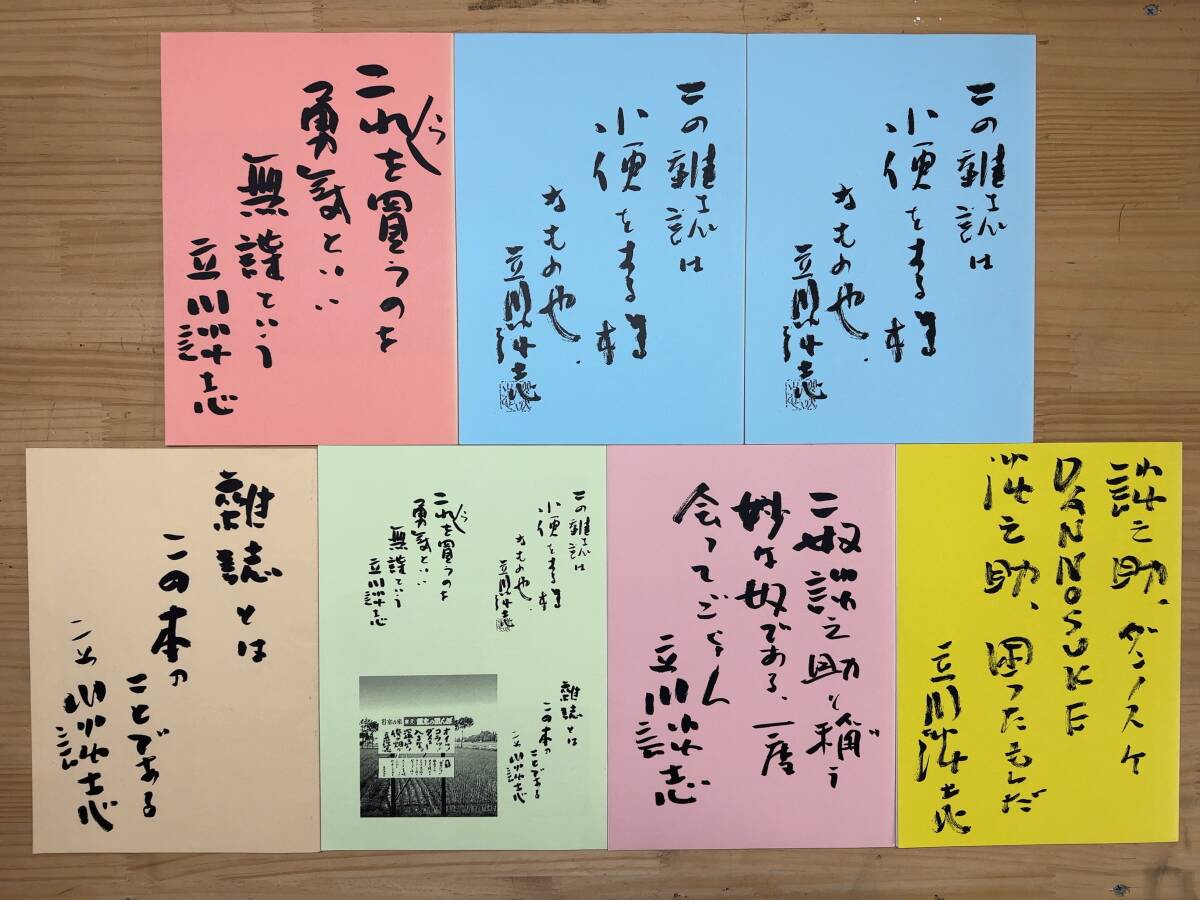 これらを買うのを
勇気といい
無謀という
立川談志
この雑誌は
小便をする様
なもの也.
立川談志
この雑誌は
小便をする様
なもの也.
立川談志
雑誌とは
この本の
ことである
立川談志
この雑誌は
小便をする様
なもの也.
立川談志
これらを買うのを
勇気といい
無謀という
立川談志
雑誌とは
この本の
ことである
立川談志
こ奴談之助と称う
妙な奴である、一度
会ってごらん
立川談志
談之助、ダンノスケ
DANNOSUKE
談之助、困ったもんだ
立川談志